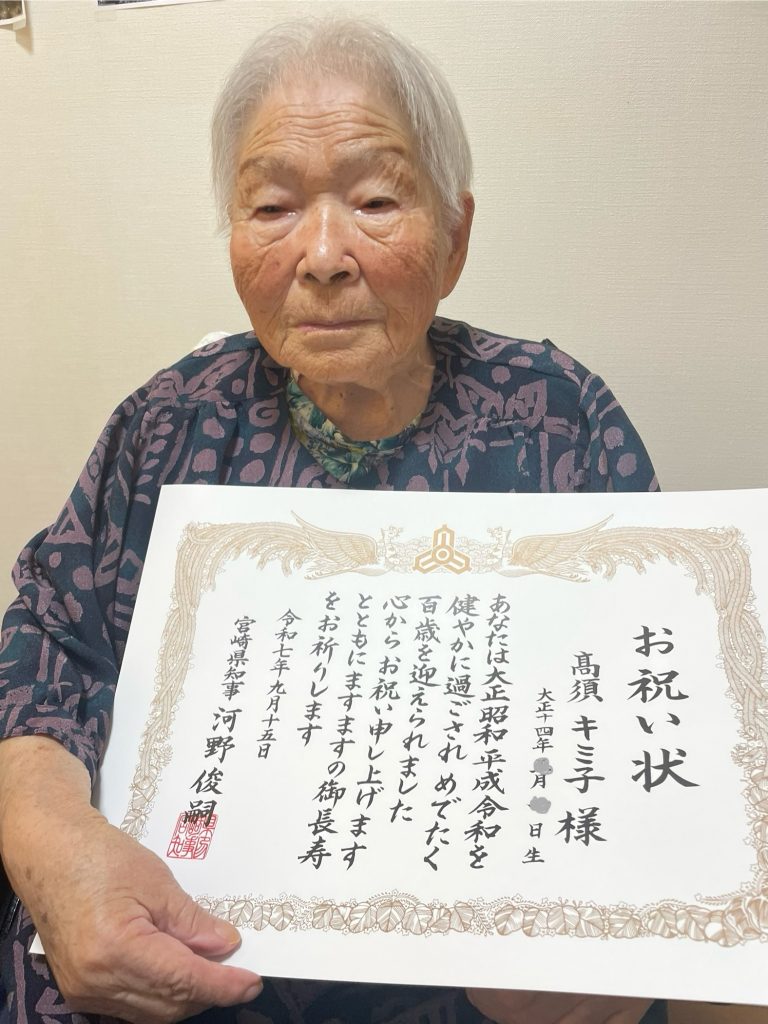 お祝い状
髙須 キミ子 様
大正十四年 月 日生
あなたは大正昭和平成令和を
健やかに過ごされ めでたく
百歳を迎えられました
心からお祝い申し上げます
とともにますますの御長寿
をお祈りします
令和七年九月十五日
宮崎県知事 河野俊嗣